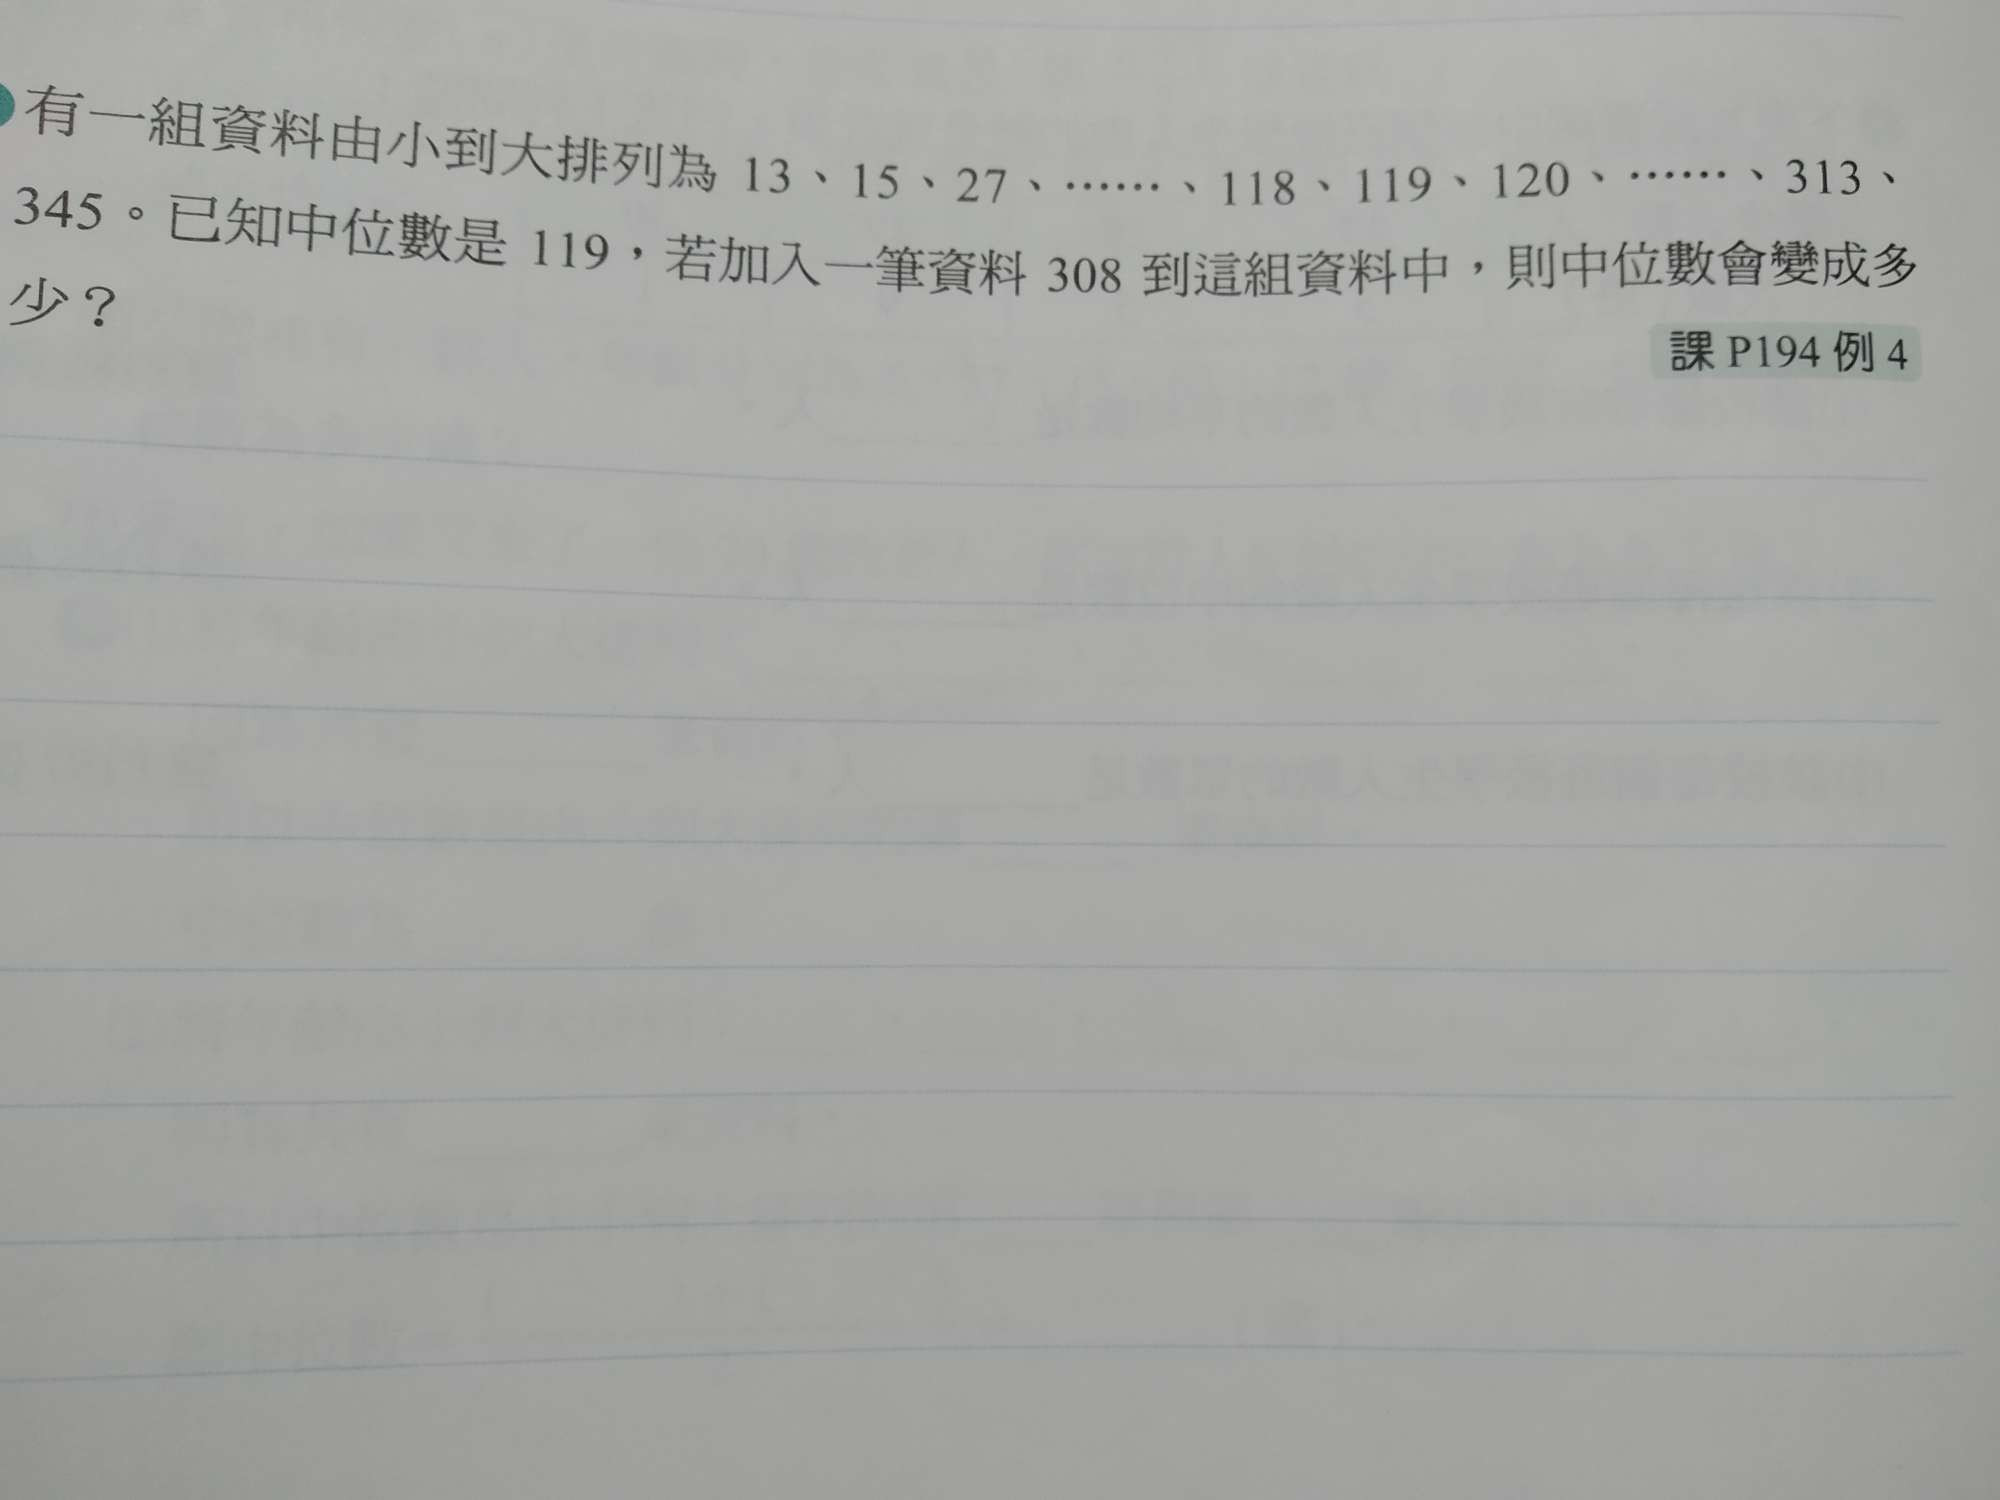 有一組資料由小到大排列為 13、15、27、……、118、119、120、……、313、
345。已知中位數是 119，若加入一筆資料 308 到這組資料中，則中位數會變成多
少？
課 P194 例 4